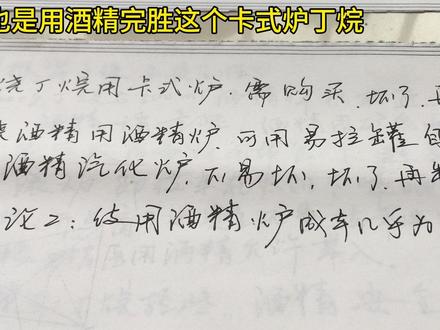 也是用酒精完胜这个卡式炉丁烷
烧丁烷用卡式炉.需购买.坏了.再
酒精用酒精炉.可用易拉罐自
酒精汽化炉,不易坏,坏了,再
论2:使用酒精炉成本几乎为